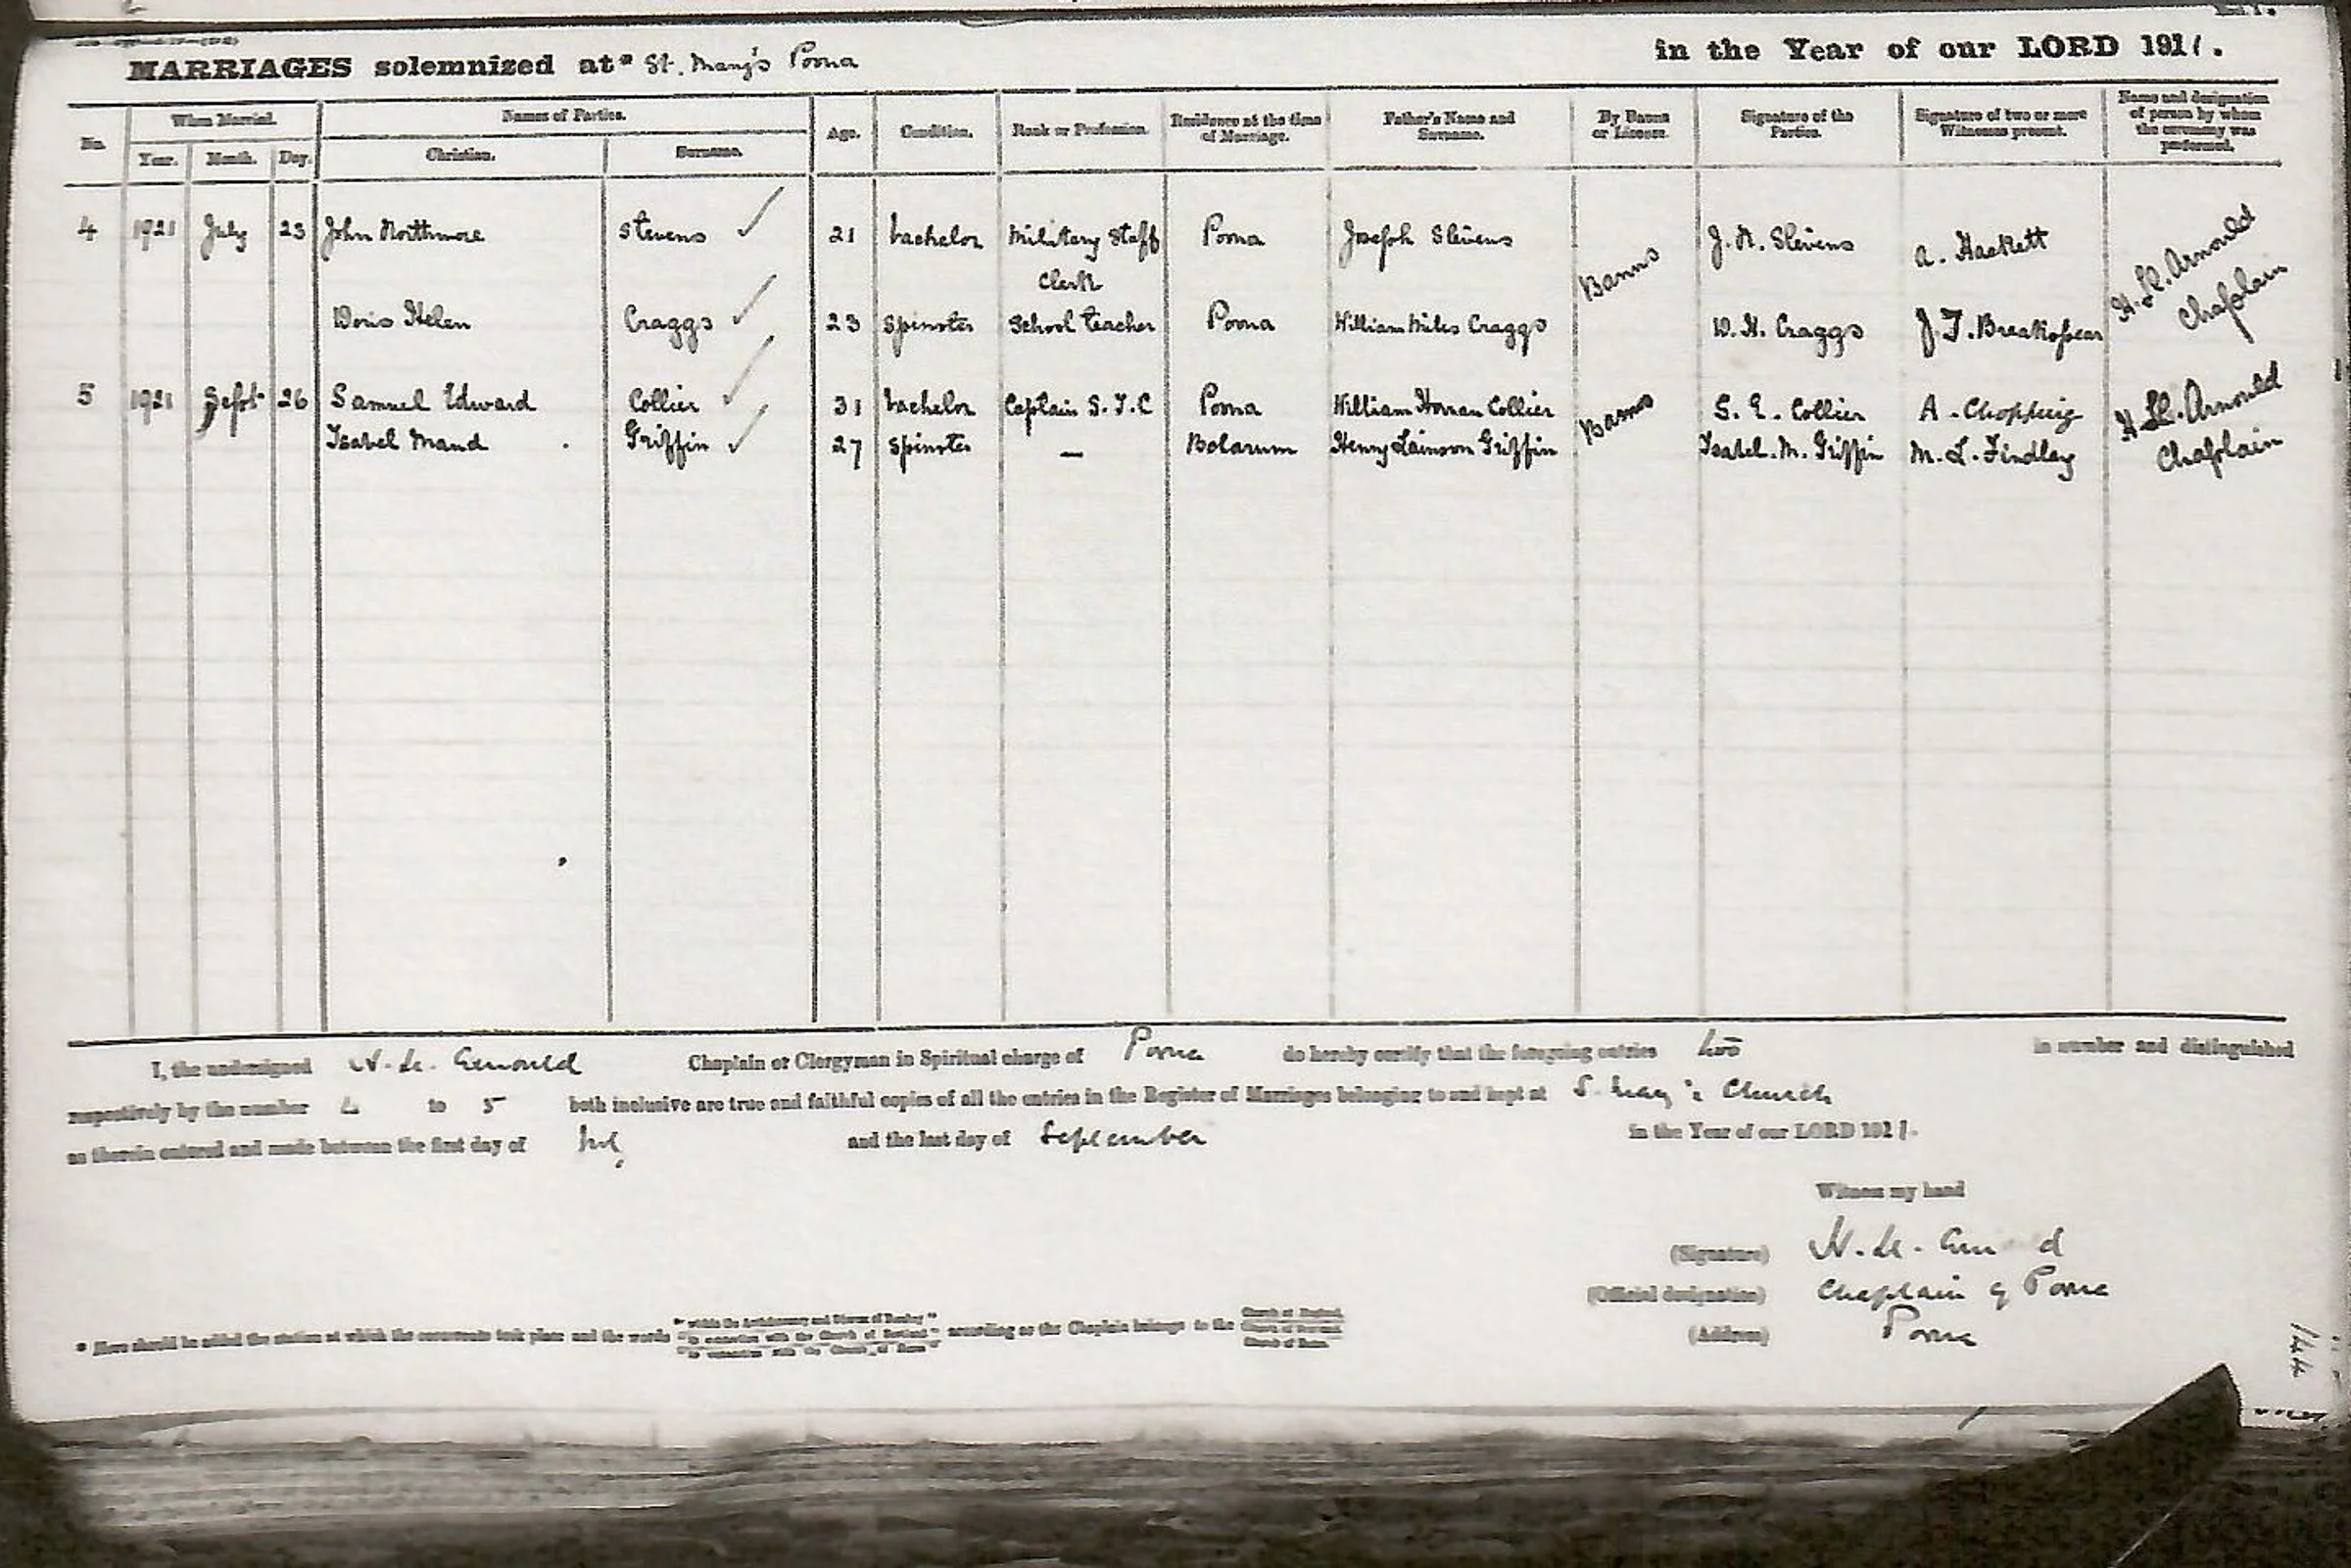 MARRIAGES solemnized at* St. Mary's Poona in the Year of our LORD 1911.
No. When Married. Names of Parties. Age. Condition. Rank or Profession. Residence at the time of Marriage. Father's Name and Surname. By Banns or License. Signature of the Parties. Signature of two or more Witnesses present. Name and designation of person by whom the ceremony was performed.
Year. Month. Day. Christian. Surname.
4 1921 July 23 John Northmore Stevens 21 bachelor Military Staff Clerk Poona Joseph Stevens Banns J. N. Stevens A. Hackett H. L. Arnould Chaplain
Doris Helen Craggs 23 Spinster School teacher Poona William Miles Craggs D. H. Craggs J. T. Breakspear
5 1921 Sept 26 Samuel Edward Collier 31 bachelor Captain S. T. C Poona William Horran Collier Banns S. E. Collier A. Chopping H. L. Arnould Chaplain
Isabel Maud Griffin 27 Spinster — Bolarum Henry Lainson Griffin Isabel. M. Griffin M. L. Findlay
I, the undersigned Arnould Chaplain or Clergyman in Spiritual charge of Poona do hereby certify that the foregoing entries two in number and distinguished
respectively by the number 4 to 5 both inclusive are true and faithful copies of all the entries in the Register of Marriages belonging to and kept at S. Mary's Church
as therein entered and made between the first day of July and the last day of September in the Year of our LORD 1921.
Witness my hand
(Signature)
(Official designation) Chaplain of Poona
(Address) Poona
* Here should be added the station at which the ceremonies took place and the words "within the Archdeaconry and Diocese of Bombay" "in connection with the Church of Scotland" "in connection with the Church of Rome" according as the Chaplain belongs to the Church of England. Church of Scotland. Church of Rome.
144